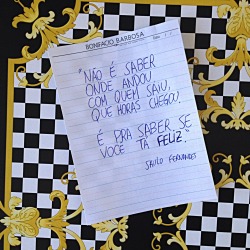 BONIFÁCIO BARBOSA
"NÃO É SABER
ONDE ANDOU,
COM QUEM SAIU,
QUE HORAS CHEGOU.
É PRA SABER SE
VOCÊ TÁ FELIZ."
SAULO FERNANDES